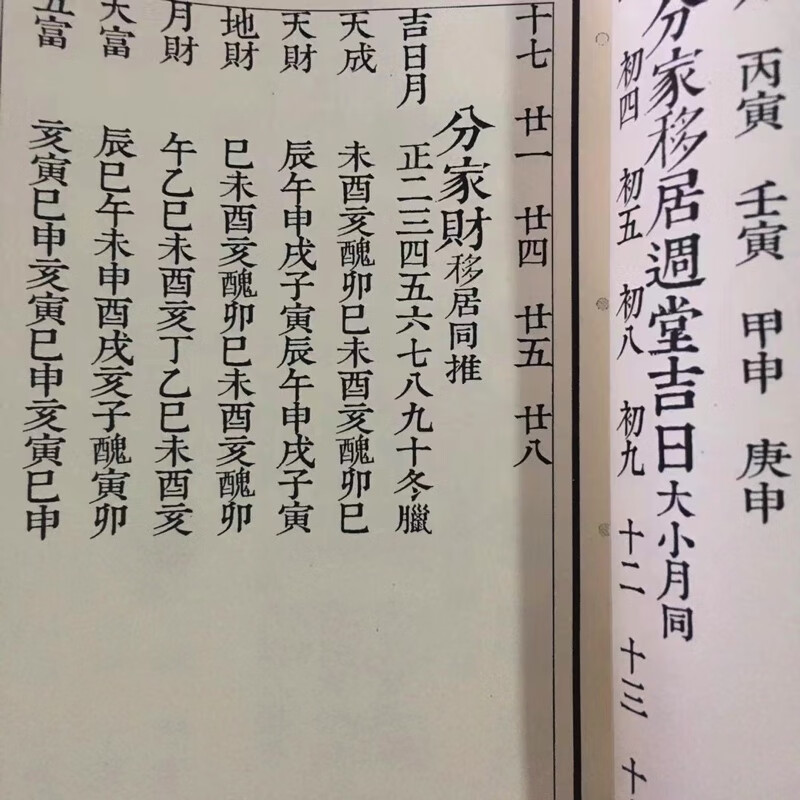 丙寅 壬寅 甲申 庚申
分家移居週堂吉日大小月同
初四 初五 初八 初九 十二 十三
十七 廿一 廿四 廿五 廿八
分家財移居同推
吉日月 正二三四五六七八九十冬臘
天成 未酉亥醜卯巳未酉亥醜卯巳
天財 辰午申戌子寅辰午申戌子寅
地財 巳未酉亥醜卯巳未酉亥醜卯
月財 午乙巳未酉亥丁乙巳未酉亥
天富 辰巳午未申酉戌亥子醜寅卯
五富 亥寅巳申亥寅巳申亥寅巳申